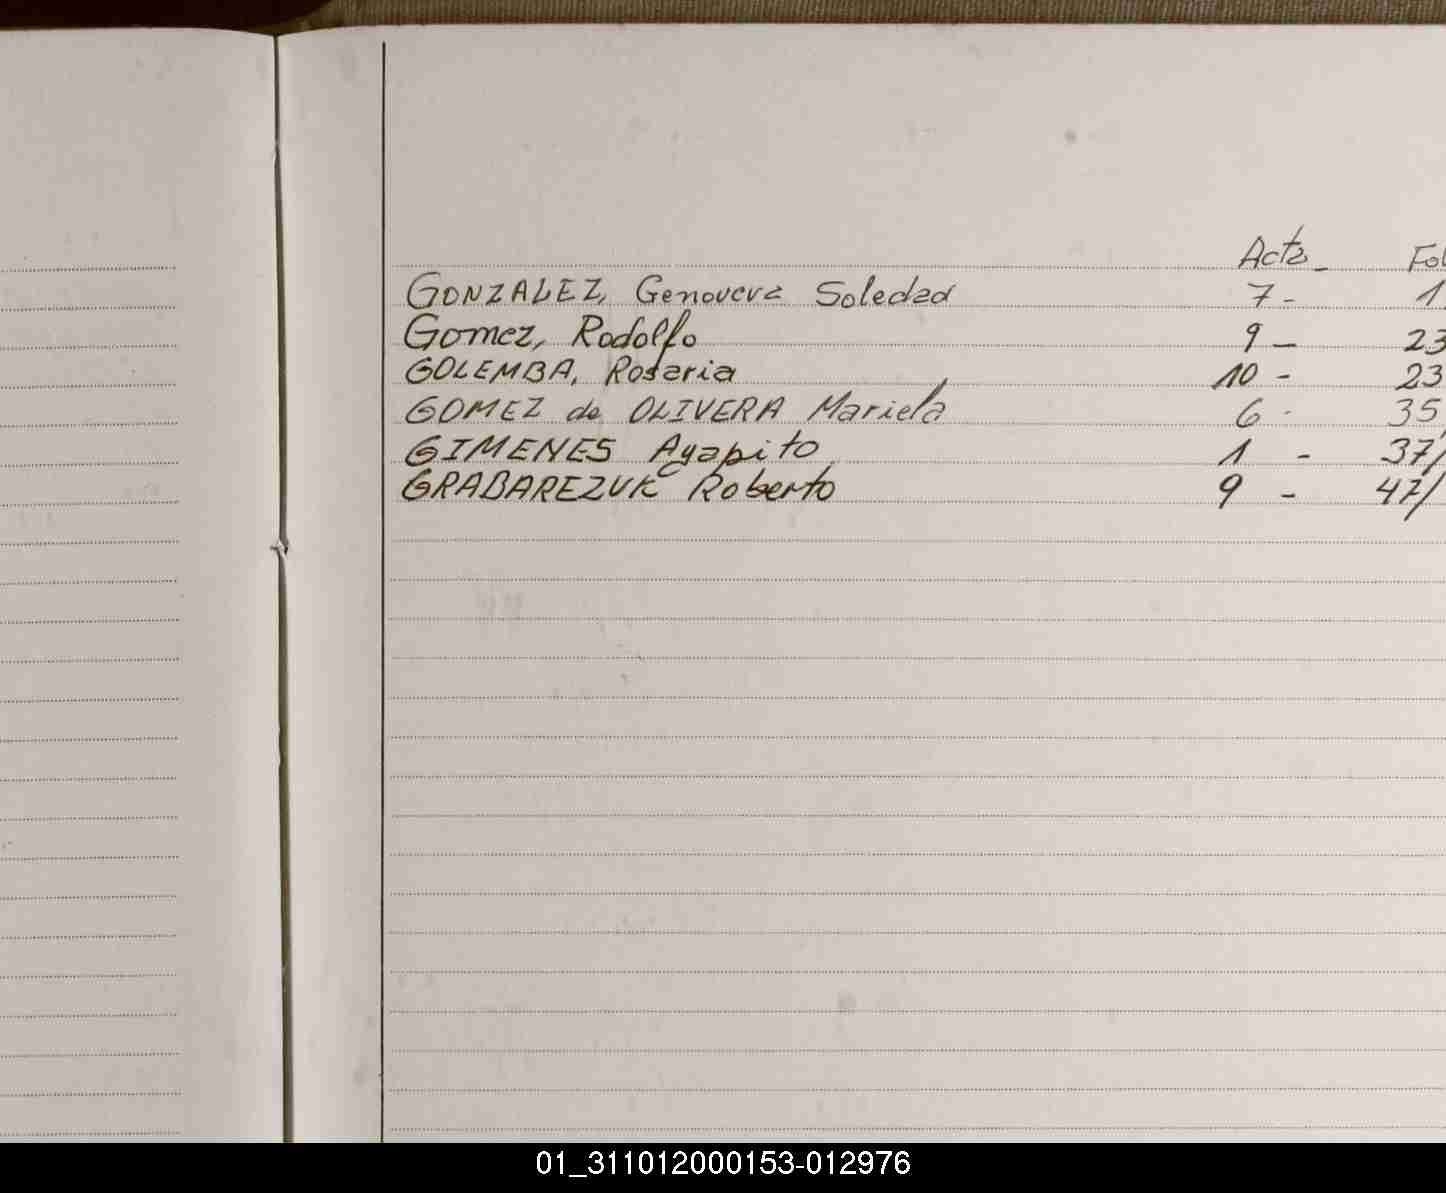 Acta - Fol
GONZALEZ, Genoveva Soledad 7 - 1
Gomez, Rodolfo 9 - 23
GOLEMBA, Rosaria 10 - 23
GOMEZ de OLIVERA Mariela 6 - 35
GIMENES Agapito 1 - 37/
GRABAREZUK Roberto 9 - 47/
01_311012000153-012976